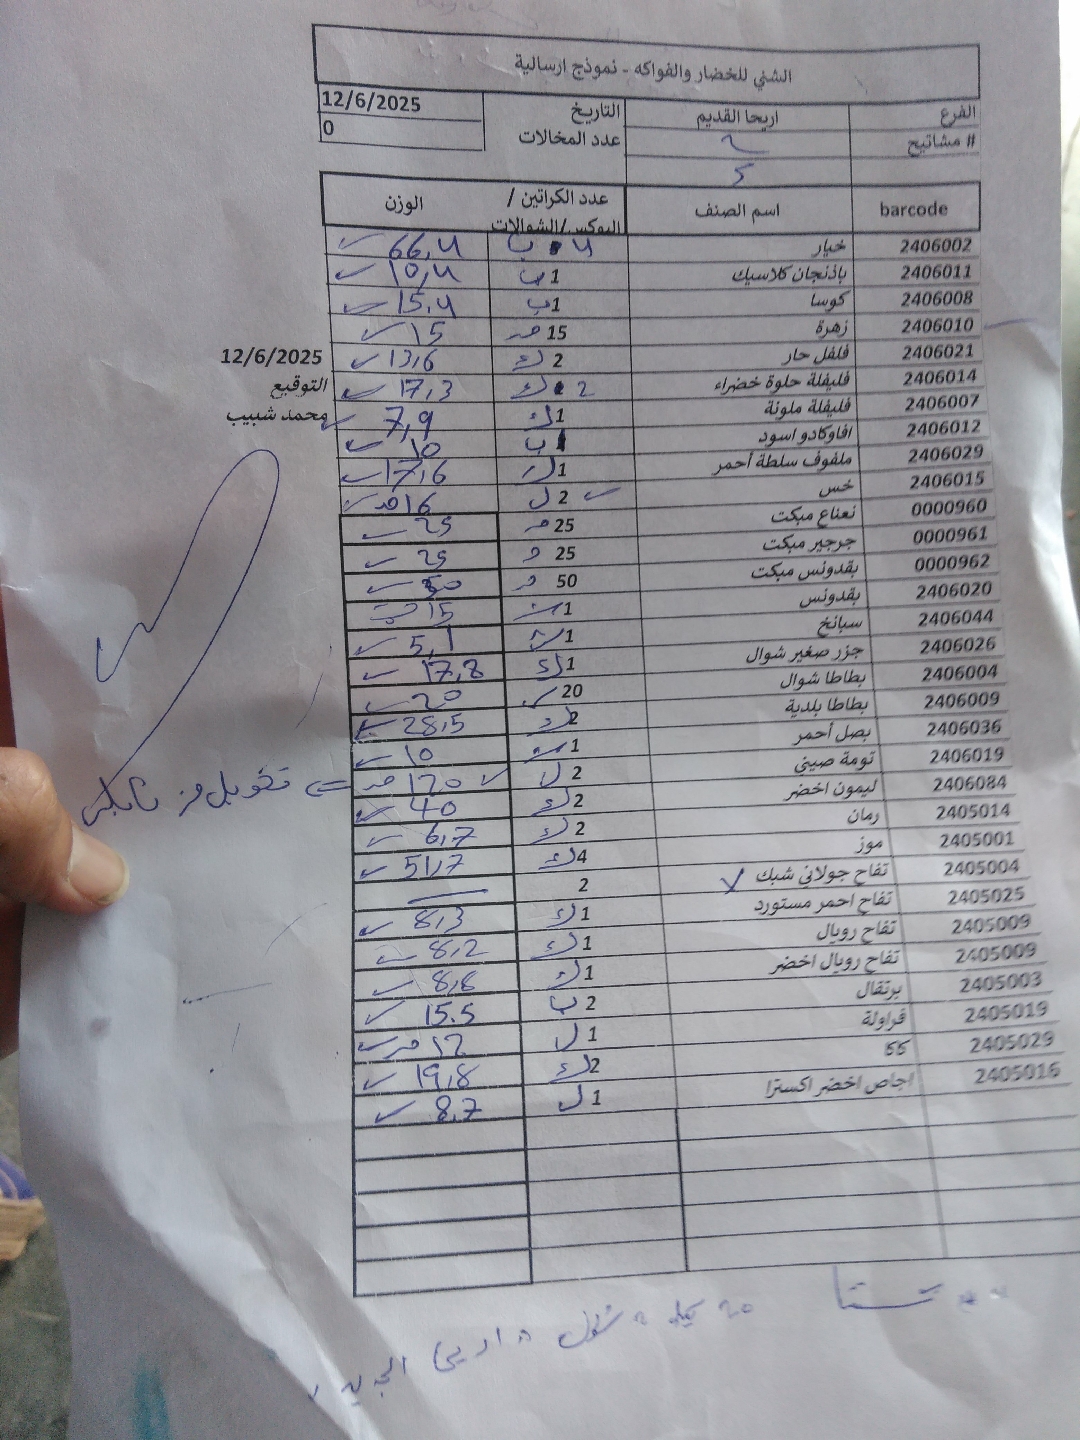 الشني للخضار والفواكه - نموذج ارسالية
الفرع اريحا القديم التاريخ 12/6/2025
# مشاتيح عدد المخالات 0
5
barcode اسم الصنف عدد الكراتين / البوكس/الشوالات الوزن
2406002 خيار 4 ب 66,4
2406011 باذنجان كلاسيك 1 ب 10,4
2406008 كوسا 1 ب 15,4
2406010 زهرة 15 15
2406021 فلفل حار 2 ك 13,6
2406014 فليفلة حلوة خضراء 2 ك 17,3
2406007 فليفلة ملونة 1 ك 7,9
2406012 افاوكادو اسود 1 ب 10
2406029 ملفوف سلطة أحمر 1 17,6
2406015 خس 2 ل 16
0000960 نعناع مبكت 25 25
0000961 جرجير مبكت 25 25
0000962 بقدونس مبكت 50 50
2406020 بقدونس 1 15
2406044 سبانخ 1 5,1
2406026 جزر صغير شوال 1 ك 17,8
2406004 بطاطا شوال 20 20
2406009 بطاطا بلدية 2 ك 28,5
2406036 بصل أحمر 1 10
2406019 تومة صيني 2 ل 120
2406084 ليمون اخضر 2 ك 40
2405014 رمان 2 ك 6,7
2405001 موز 4 ك 51,7
2405004 تفاح جولاني شبك 2
2405025 تفاح احمر مستورد 1 ك 8,3
2405009 تفاح رويال 1 ك 8,2
2405009 تفاح رويال اخضر 1 ك 8,8
2405003 برتقال 2 ب 15.5
2405019 فراولة 1 ل 12
2405029 كاكا 2 ك 19,8
2405016 اجاص اخضر اكسترا 1 ل 8,7
12/6/2025
التوقيع
محمد شبيب
تحويل من نابلس
اريحا الجديد